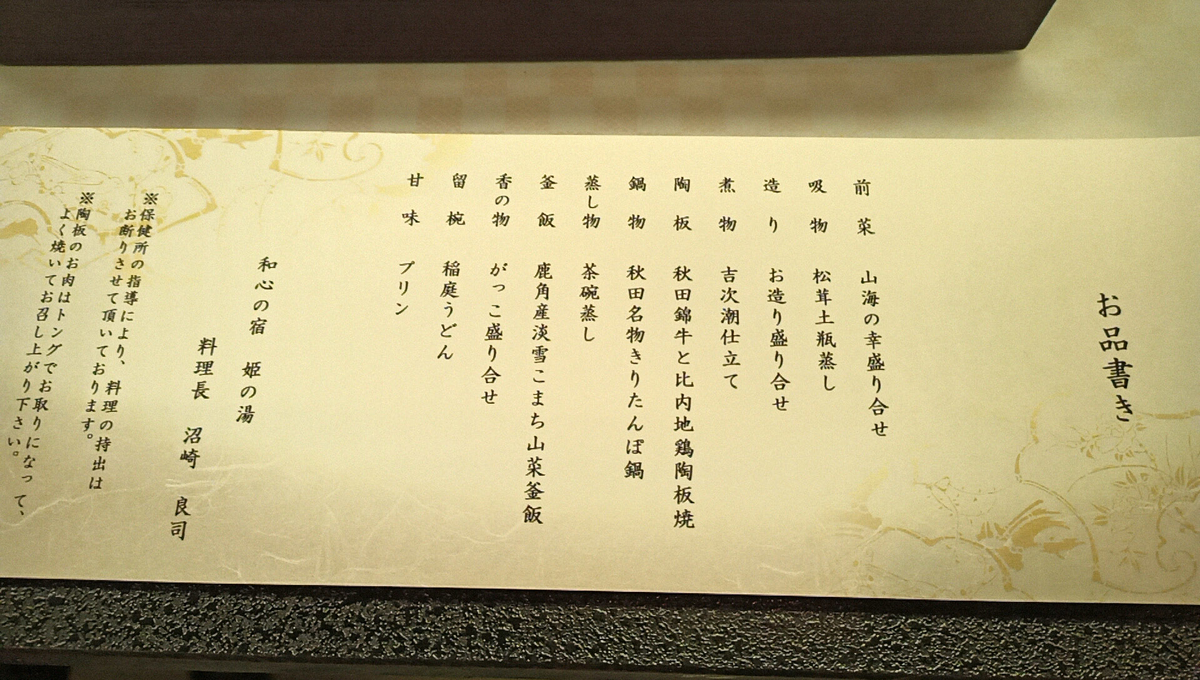 お品書き
前菜 山海の幸盛り合せ
吸物 松茸土瓶蒸し
造り お造り盛り合せ
煮物 吉次潮仕立て
陶板 秋田錦牛と比内地鶏陶板焼
鍋物 秋田名物きりたんぽ鍋
蒸し物 茶碗蒸し
釜飯 鹿角産淡雪こまち山菜釜飯
香の物 がっこ盛り合せ
留椀 稲庭うどん
甘味 プリン
和心の宿 姫の湯
料理長 沼崎 良司
※保健所の指導により、料理の持出は
お断りさせて頂いております。
※陶板のお肉はトングでお取りになって、
よく焼いてお召し上がり下さい。